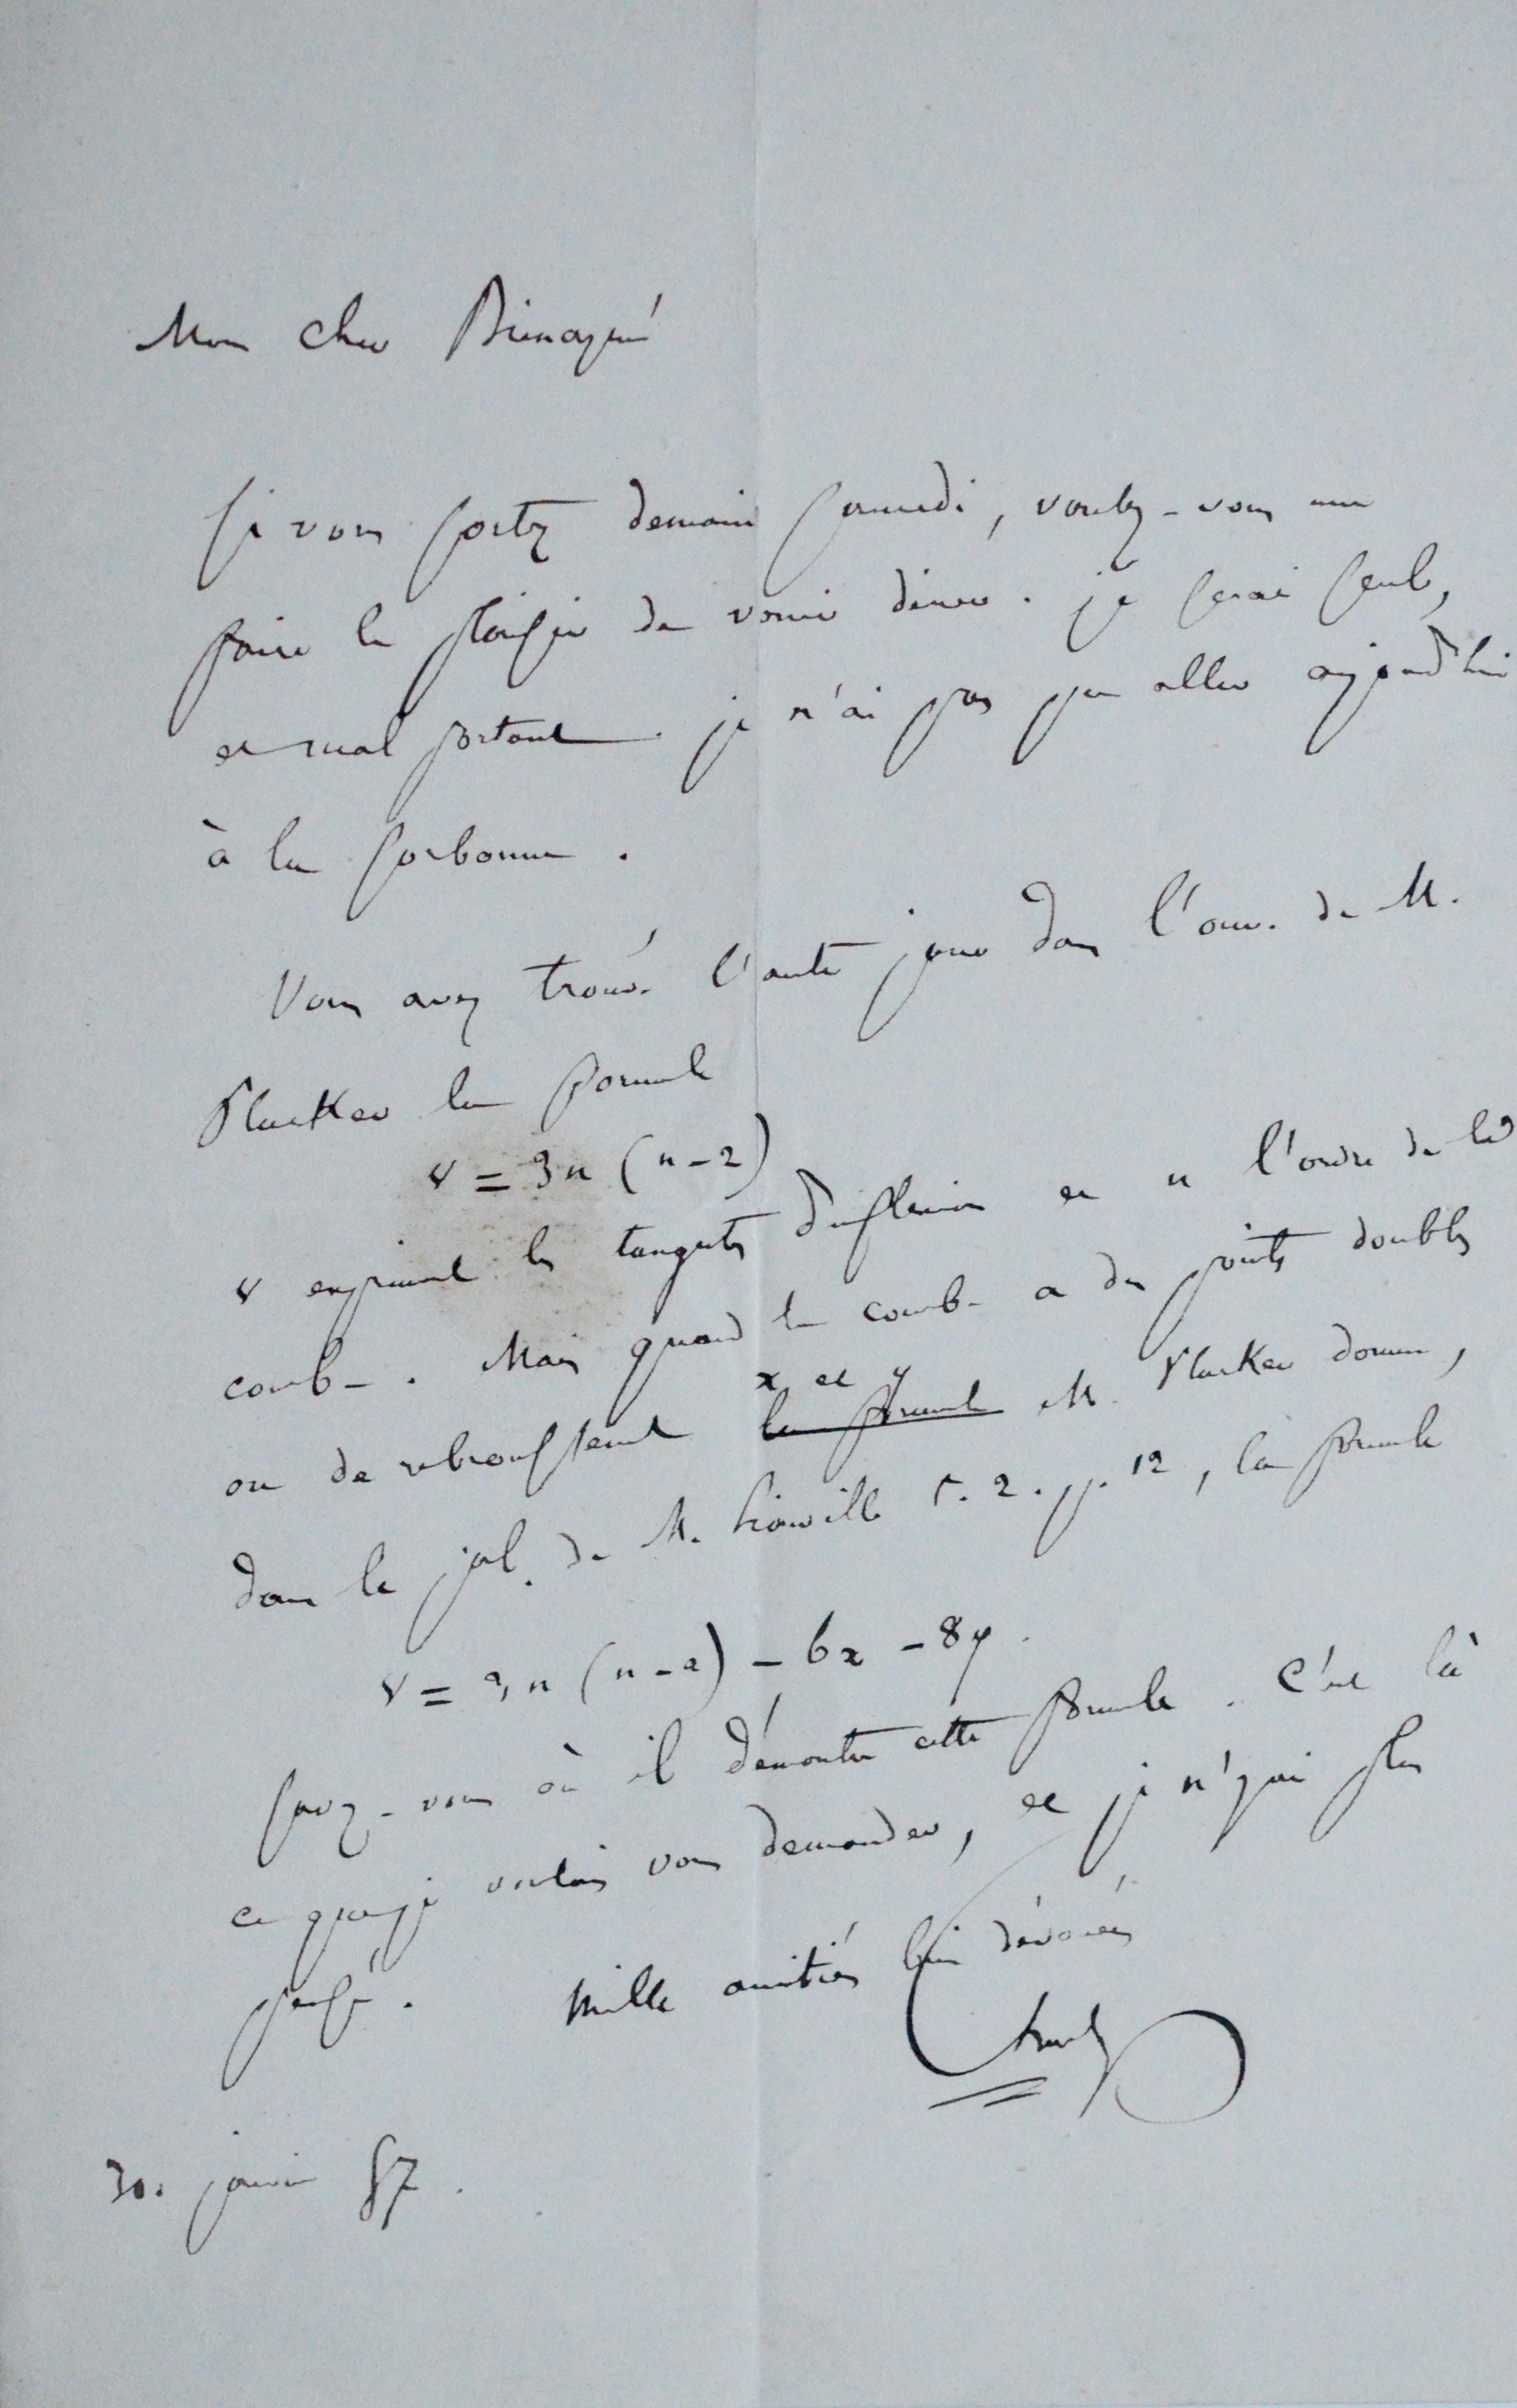 Mon cher Bienaymé
Si vous sortez demain samedi, voulez-vous me
faire le plaisir de venir diner. je serai seul,
et mal portant. je n'ai pas pu aller aujourd'hui
à la Sorbonne.
Vous avez trouvé l'autre jour dans l'ouv. de M.
Plucker la formule
v = 3n (n-2)
v exprimant les tangentes d'inflexion et n l'ordre de la
courbe. Mais quand la courbe a des points doubles
x et y
ou de rebroussement la formule M. Plucker donne,
dans le jal. de M. Liouville t. 2. p. 12, la formule
v = 3n (n-2) - 6x - 8y.
Savez-vous où il démontre cette formule. C'est là
ce que je voulais vous demander, et je n'y ai plus
pensé. Mille amitiés bien dévouées
Chasles
30. janvier 57.